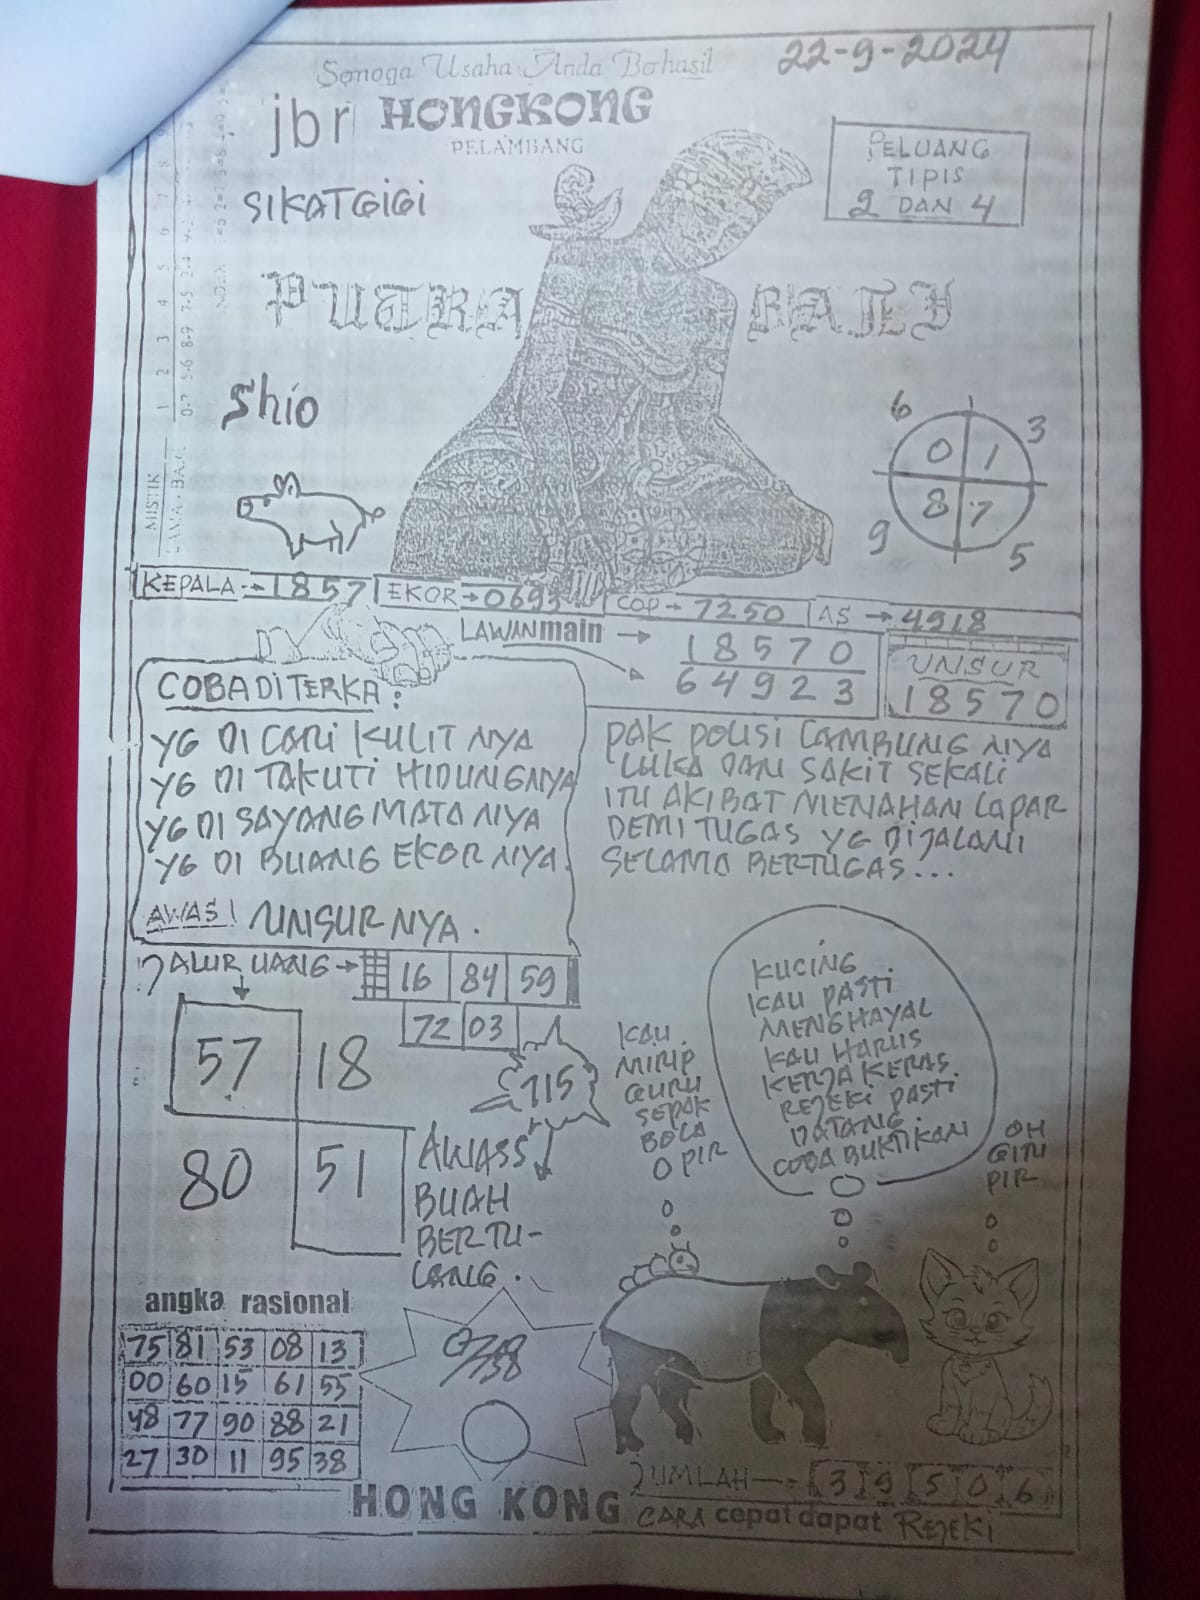 22-9-2024
Semoga Usaha Anda Berhasil
jbr HONGKONG
PELAMBANG
PELUANG
TIPIS
2 DAN 4
SIKATGIGI
PUTRA BALI
Shio
1 2 3 4 5 6 7 8
MISTIK
LAMA - BAR
0-7 5-6 8-9 7-5 2-4
6 3
0 1
8 7
9 5
KEPALA → 1857 EKOR → 0693 COP → 7250 AS → 4918
LAWAN main → 18570
64923
UNSUR
18570
COBA DITERKA :
YG DI CARI KULIT NYA
YG DI TAKUTI HIDUNGNYA
YG DI SAYANG MATA NYA
YG DI BUANG EKOR NYA.
AWAS! UNSUR NYA.
PAK POLISI LAMBUNG NYA
LUKA DAN SAKIT SEKALI
ITU AKIBAT MENAHAN LAPAR
DEMI TUGAS YG DIJALANI
SELAMA BERTUGAS...
JALUR UANG → 16 84 59
72 03
57 18
80 51
715
AWASS
BUAH
BERTU-
LANG.
KAU
MIRIP
GURU
SEPAK
BOLA
O PIR
KUCING
KAU PASTI
MENGHAYAL
KAU HARUS
KERJA KERAS.
REJEKI PASTI
DATANG.
COBA BUKTIKAN
OH
GITU
PIR
angka rasional
75 81 53 08 13
00 60 15 61 55
48 77 90 88 21
27 30 11 95 38
JUMLAH → 3 9 5 0 6
HONG KONG CARA cepat dapat REJEKI